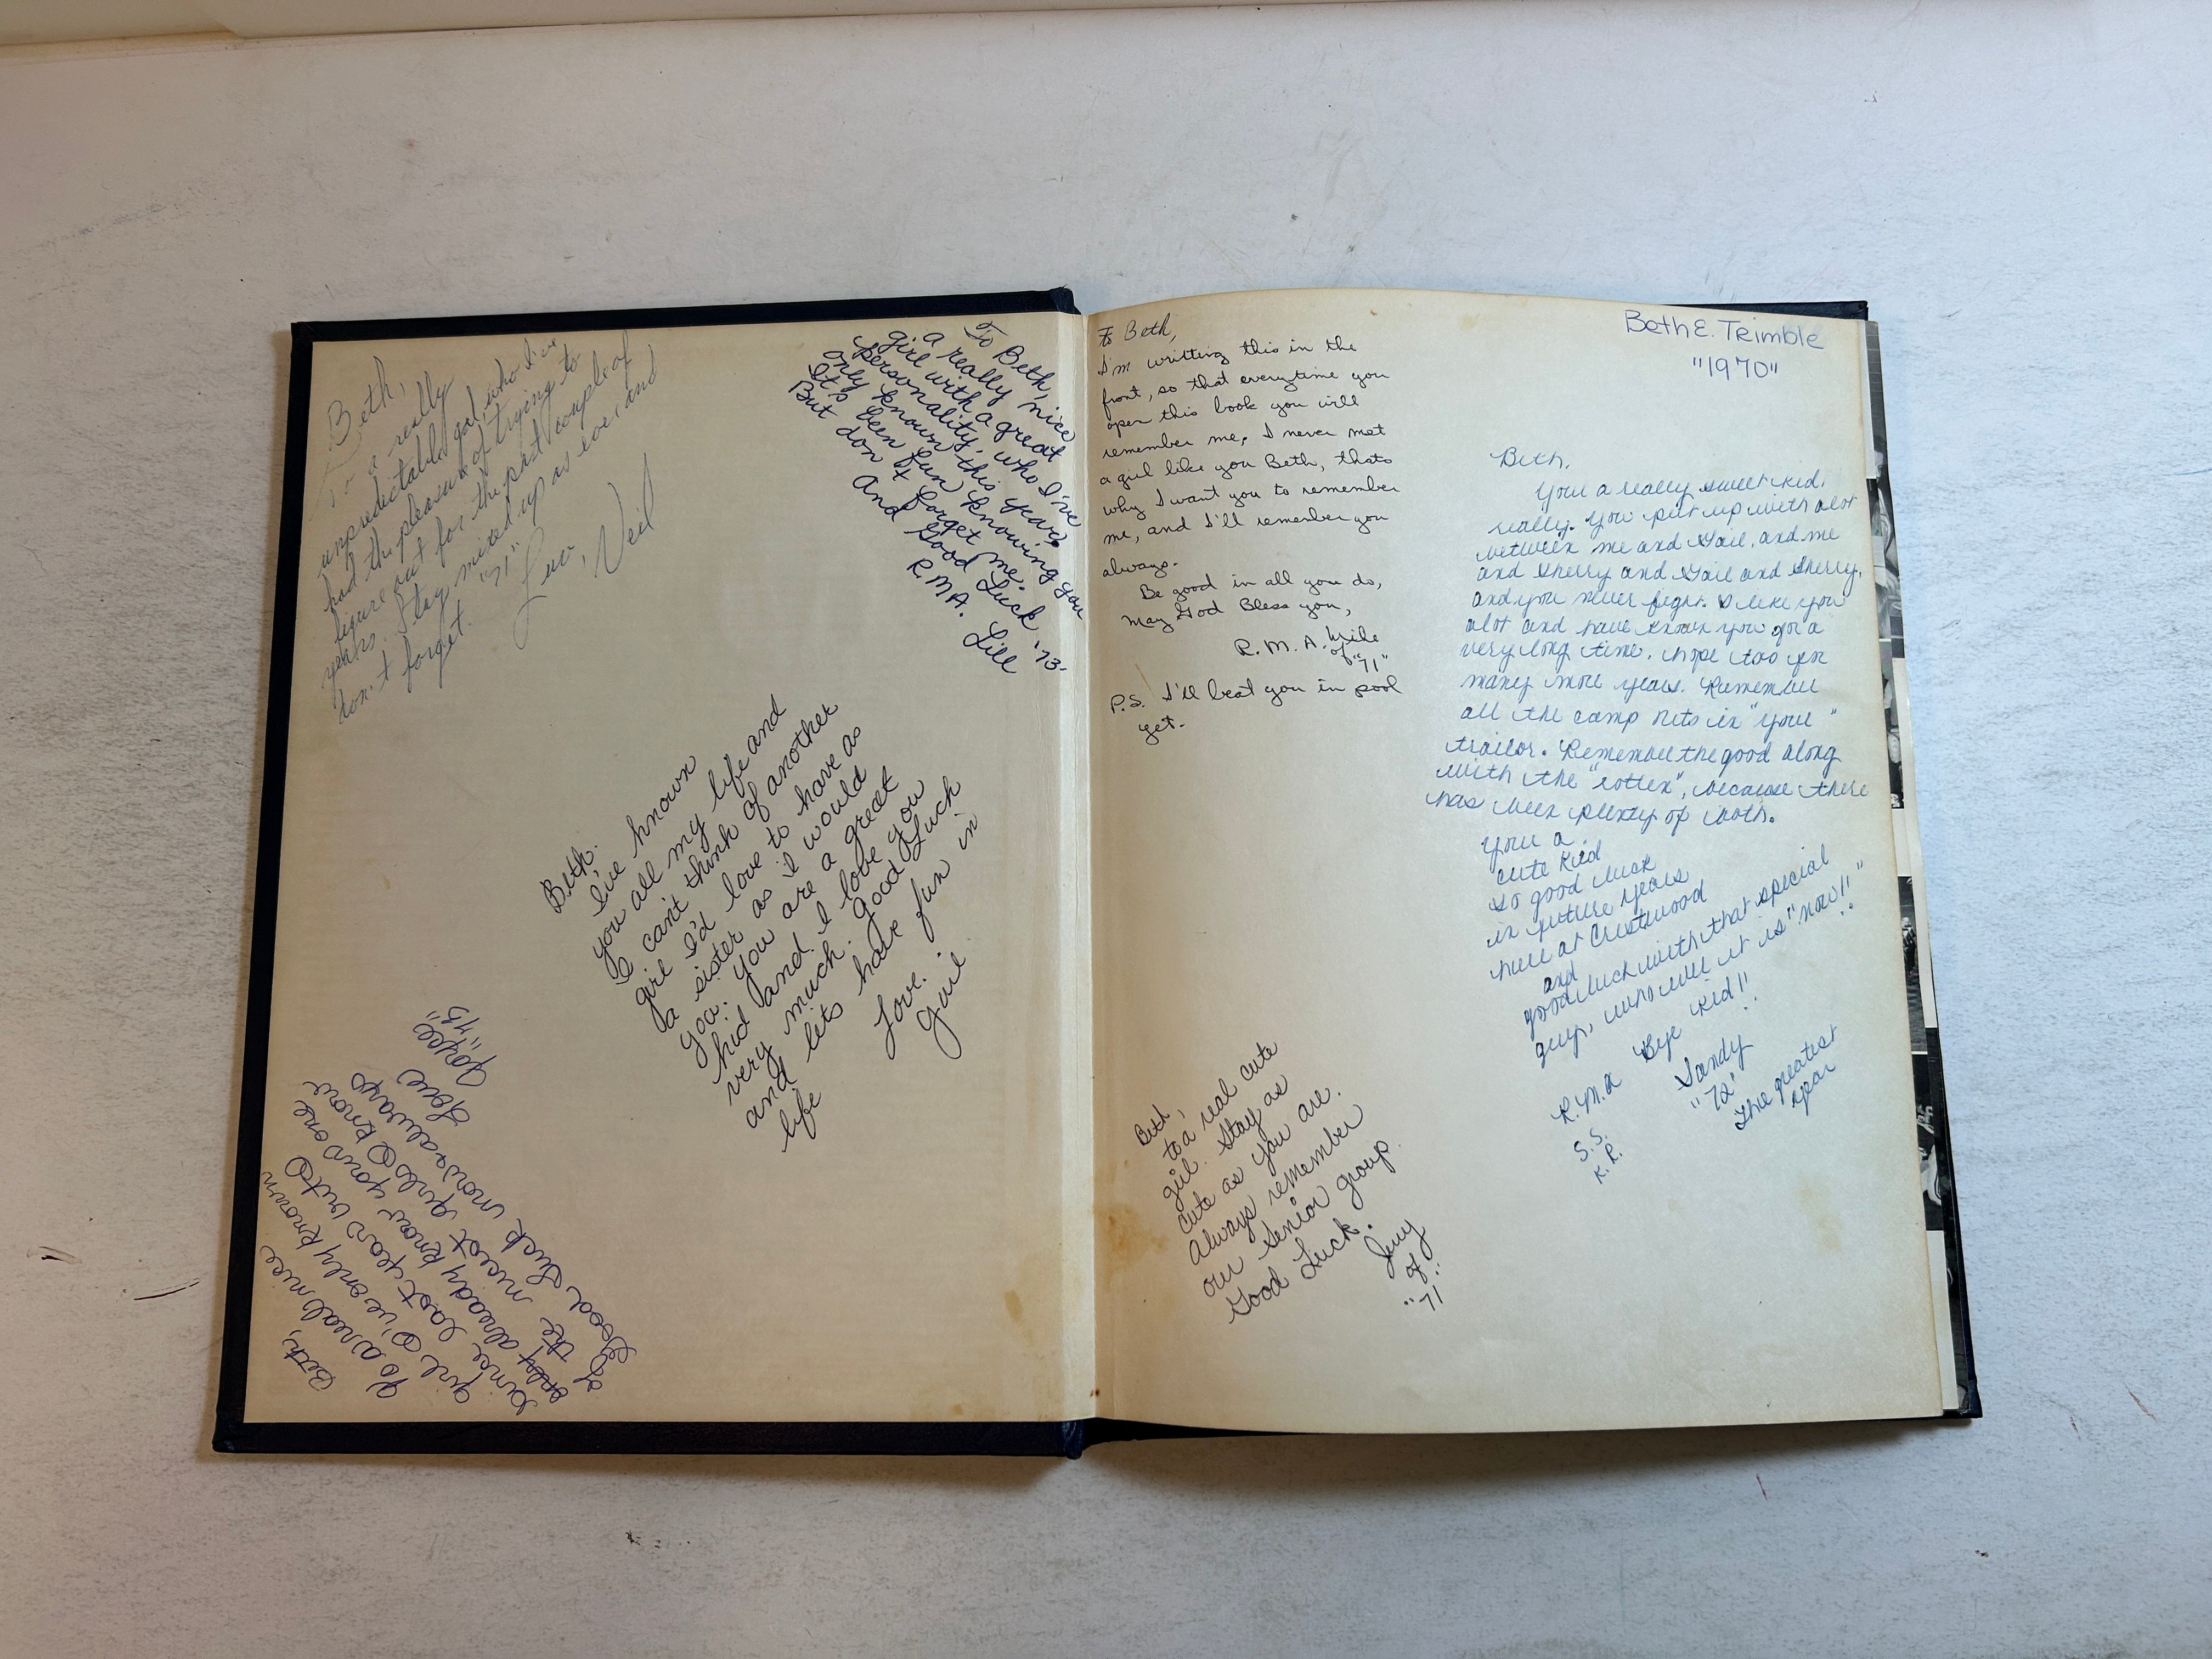 Beth,
To a really
unpredictable gal, who I've
had the pleasure of trying to
figure out for the past couple of
years. Stay mixed up as ever and
don't forget. "71"
Luv, Neil
To Beth,
a really nice
girl with a great
personality, who I've
only known this year.
It's been fun knowing you
But don't forget me.
And Good Luck
R.M.A. '73.
Lill
Beth.
I've known
you all my life and
I can't think of another
girl I'd love to have as
a sister as I would
you. You are a great
kid and I love you
very much. Good Luck
and lets have fun in
life
Love.
Gail
Beth,
To a real nice
girl I've only known
since last year but I
already know your one
of the nicest girls I know
Good Luck now & always
Love
Joyce
"75"
To Beth,
I'm writting this in the
front, so that everytime you
open this book you will
remember me. I never met
a girl like you Beth, thats
why I want you to remember
me, and I'll remember you
always.
Be good in all you do,
May God Bless you,
R.M.A. Mike
of "71"
P.S. I'll beat you in pool
yet.
Beth,
to a real cute
girl. Stay as
cute as you are.
Always remember
our Senior group.
Good Luck.
Jerry
of
"71"
Beth E. Trimble
"1970"
Beth,
Your a really sweet kid,
really. You put up with alot
between me and Gail, and me
and Sherry and Gail and Sherry,
and you never fight. I like you
alot and have known you for a
very long time, hope too for
many more years. Remember
all the camp nits in "your"
trailor. Remember the good along
with the "rotten", because there
has been plenty of both.
Your a
cute kid
so good luck
in future years
here at Crestwood
and
good luck with that special
guy, who ever it is "now!!"
Bye kid!!
R.M.A
Sandy
"72"
The greatest
year
S.S.
K.R.